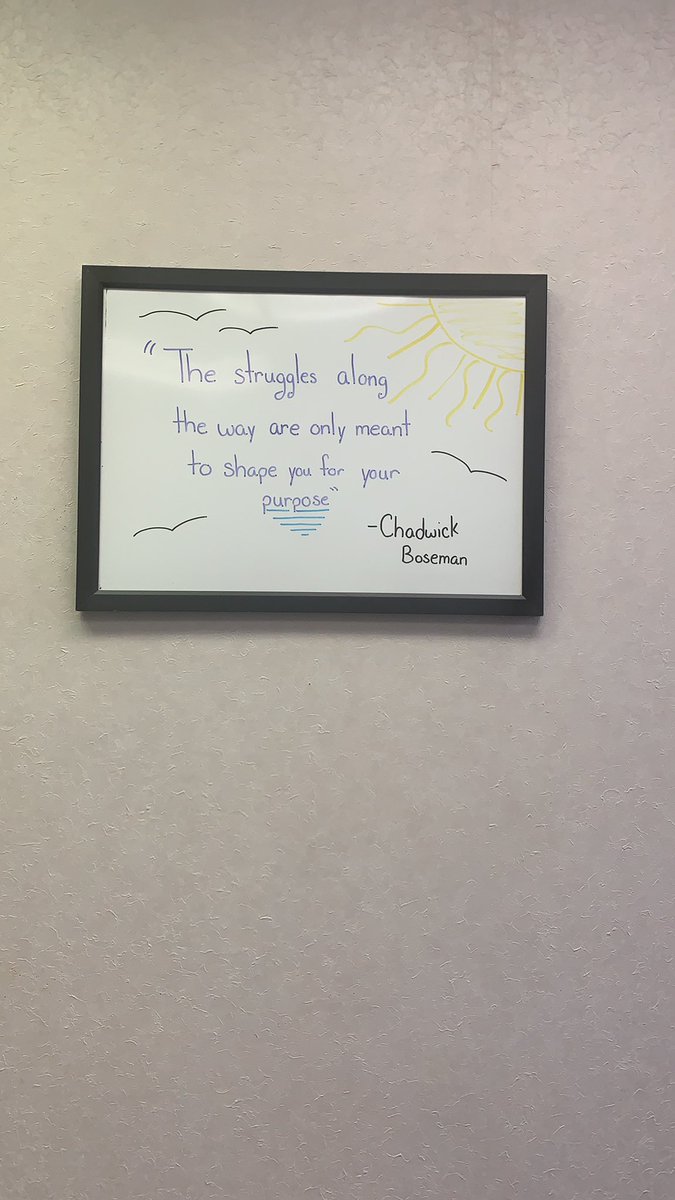 "The struggles along
the way are only meant
to shape you for your
purpose"
-Chadwick
Boseman